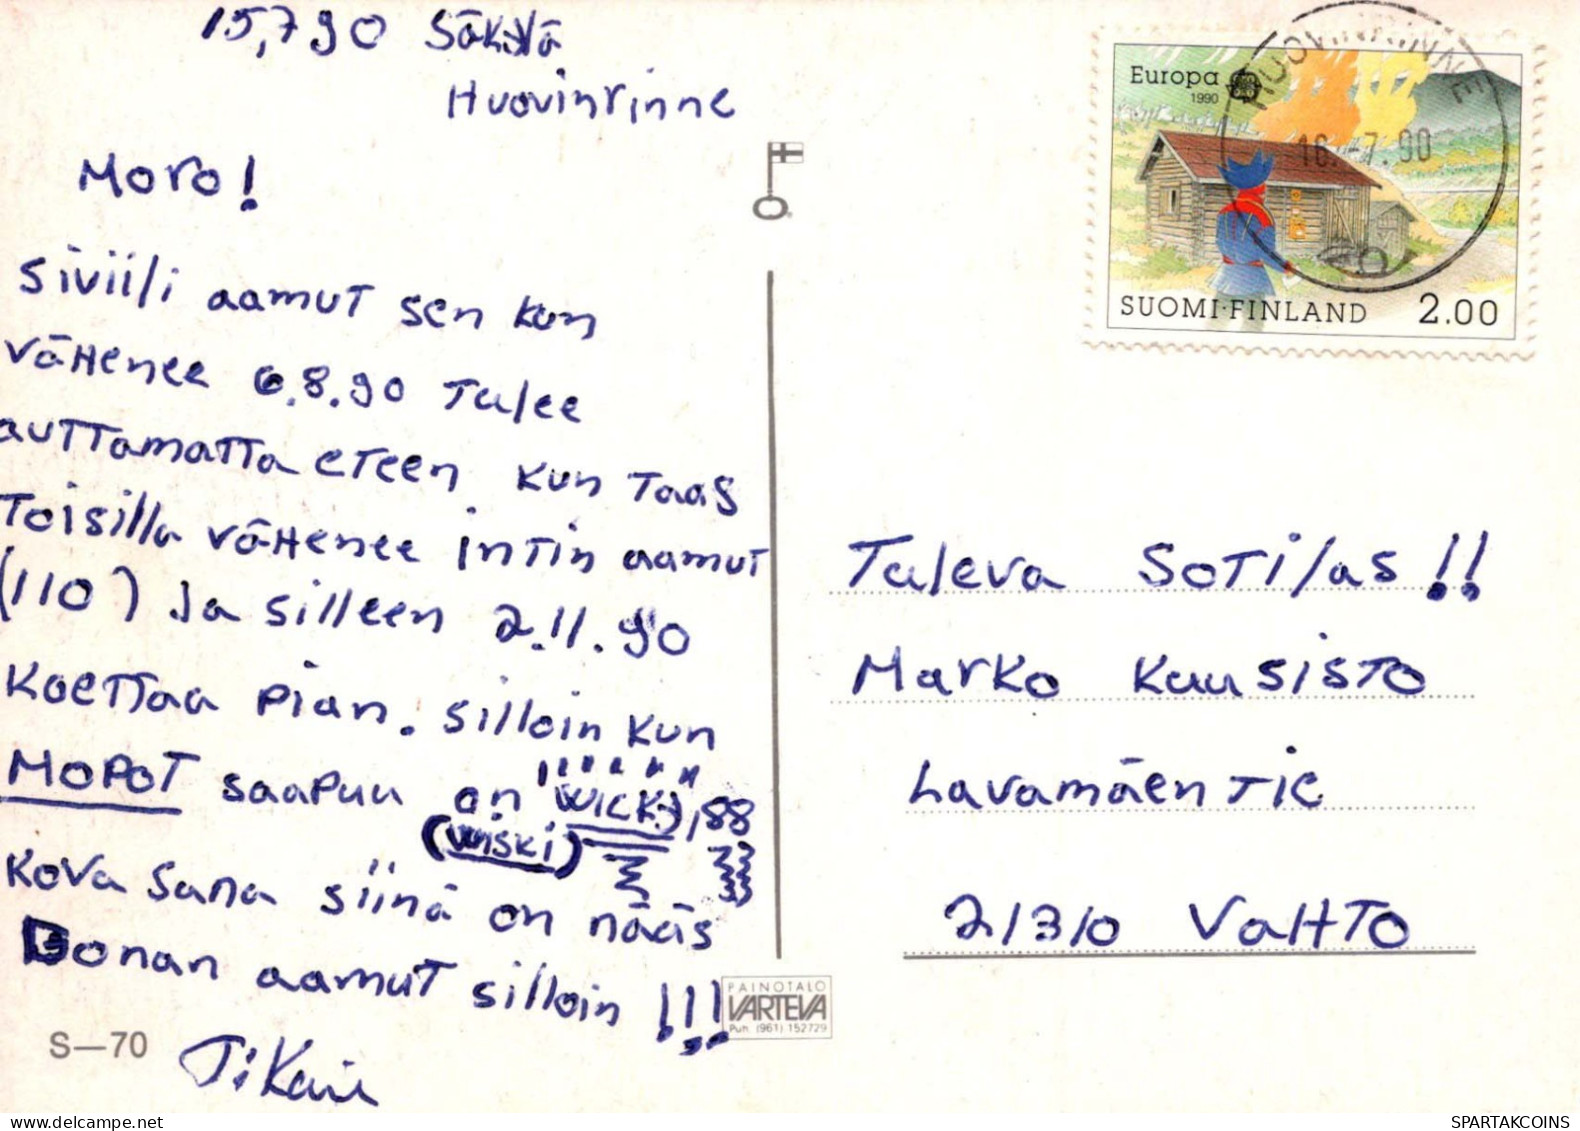 15,7 90 Säkylä
Huovinrinne
Moro!
siviili aamut sen kun
vähenee 6.8.90 Tulee
auttamatta eteen kun taas
Toisilla vähenee intin aamut
(110) Ja silleen 2.11.90
Koettaa pian. silloin kun
MOPOT saapuu on WICKY,88
(wiski)
Kova sana siinä on nääs
Gonan aamut silloin !!!
S—70
PAINOTALO
VARTEVA
Puh. (961) 152729
Europa
1990
SUOMI·FINLAND 2.00
HUOVINRINNE
16.-7.90
Tuleva Sotilas!!
Marko Kuusisto
Lavamäentie
21310 Vahto
SPARTAKCOINS